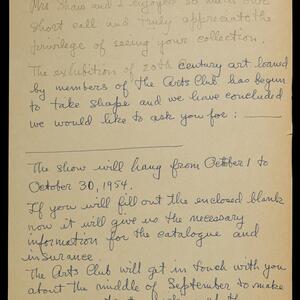 Mrs Shaw and I enjoyed so much our
short call and truly appreciate the
privilege of seeing your collection.
The exhibition of 20th century art loaned
by members of The Arts Club has begun
to take shape and we have concluded
we would like to ask you for :
The show will hang from October 1 to
October 30, 1954.
If you will fill out the enclosed blank
now it will give us the necessary
information for the catalogue and
insurance.
The Arts Club will get in touch with you
about the middle of September to make